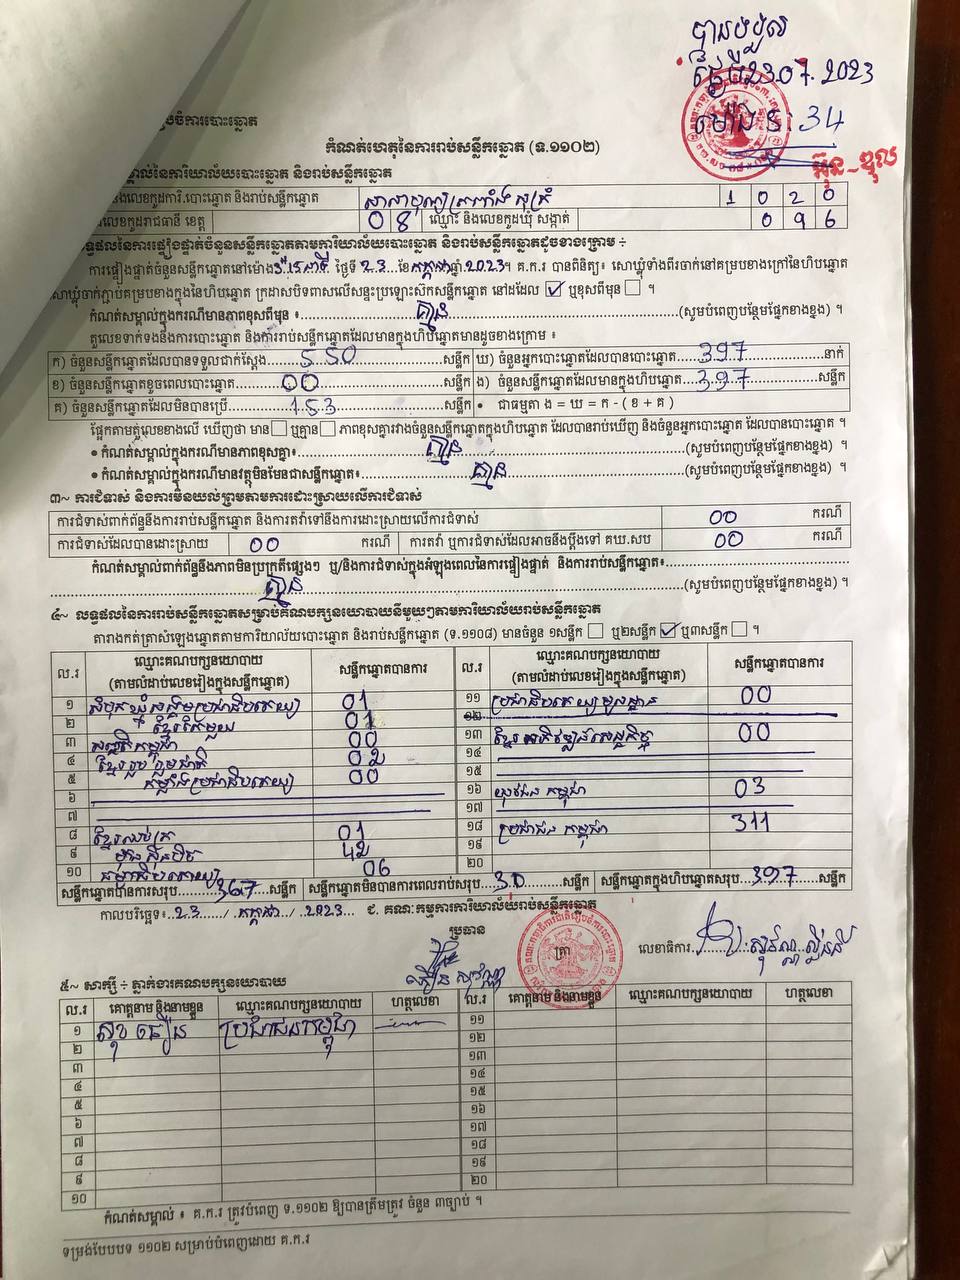 បានបបួល
ថ្ងៃទី23.07.2023
ម៉ោង 5:34
រៀបចំការបោះឆ្នោត
កំណត់ហេតុនៃការរាប់សន្លឹកឆ្នោត (ទ.១១០២)
នៃការិយាល័យបោះឆ្នោត និងរាប់សន្លឹកឆ្នោត
និងលេខកូដការិ.បោះឆ្នោត និងរាប់សន្លឹកឆ្នោត 1 0 2 0
លេខកូដរាជធានី ខេត្ត 0 8 ឈ្មោះ និងលេខកូដឃុំ សង្កាត់ 0 9 6
លទ្ធផលនៃការផ្ទៀងផ្ទាត់ចំនួនសន្លឹកឆ្នោតតាមការិយាល័យបោះឆ្នោត និងរាប់សន្លឹកឆ្នោតដូចខាងក្រោម ÷
ការផ្ទៀងផ្ទាត់ចំនួនសន្លឹកឆ្នោតនៅម៉ោង 3:15នាទី ថ្ងៃទី 23 ខែ កក្កដា ឆ្នាំ 2023។ គ.ក.រ បានពិនិត្យ៖ សោឃ្លុំទាំងពីរចាក់នៅគម្របខាងក្រៅនៃហិបឆ្នោត
សោឃ្លុំចាក់ភ្ជាប់គម្របខាងក្នុងនៃហិបឆ្នោត ក្រដាសបិទពាសលើសន្ទះប្រឡោះសិកសន្លឹកឆ្នោត នៅដដែល ☑ ឬខុសពីមុន ☐ ។
កំណត់សម្គាល់ក្នុងករណីមានភាពខុសពីមុន ៖ គ្មាន (សូមបំពេញបន្ថែមផ្នែកខាងខ្នង) ។
តួលេខទាក់ទងនឹងការបោះឆ្នោត និងការរាប់សន្លឹកឆ្នោតដែលមានក្នុងហិបឆ្នោតមានដូចខាងក្រោម ៖
ក) ចំនួនសន្លឹកឆ្នោតដែលបានទទួលជាក់ស្តែង 550 សន្លឹក ឃ) ចំនួនអ្នកបោះឆ្នោតដែលបានបោះឆ្នោត 397 នាក់
ខ) ចំនួនសន្លឹកឆ្នោតខូចពេលបោះឆ្នោត 00 សន្លឹក ង) ចំនួនសន្លឹកឆ្នោតដែលមានក្នុងហិបឆ្នោត 397 សន្លឹក
គ) ចំនួនសន្លឹកឆ្នោតដែលមិនបានប្រើ 153 សន្លឹក • ជាធម្មតា ង = ឃ = ក - ( ខ + គ )
ផ្អែកតាមតួលេខខាងលើ ឃើញថា មាន ☐ ឬគ្មាន ☐ ភាពខុសគ្នារវាងចំនួនសន្លឹកឆ្នោតក្នុងហិបឆ្នោត ដែលបានរាប់ឃើញ និងចំនួនអ្នកបោះឆ្នោត ដែលបានបោះឆ្នោត ។
• កំណត់សម្គាល់ក្នុងករណីមានភាពខុសគ្នា៖ គ្មាន (សូមបំពេញបន្ថែមផ្នែកខាងខ្នង) ។
• កំណត់សម្គាល់ក្នុងករណីមានវត្ថុមិនមែនជាសន្លឹកឆ្នោត៖ គ្មាន (សូមបំពេញបន្ថែមផ្នែកខាងខ្នង) ។
៣~ ការជំទាស់ និងការមិនយល់ព្រមតាមការដោះស្រាយលើការជំទាស់
ការជំទាស់ពាក់ព័ន្ធនឹងការរាប់សន្លឹកឆ្នោត និងការតវ៉ាទៅនឹងការដោះស្រាយលើការជំទាស់ 00 ករណី
ការជំទាស់ដែលបានដោះស្រាយ 00 ករណី ការតវ៉ា ឬការជំទាស់ដែលអាចនឹងប្តឹងទៅ គឃ.សប 00 ករណី
កំណត់សម្គាល់ពាក់ព័ន្ធនឹងភាពមិនប្រក្រតីផ្សេងៗ ឬ/និងការជំទាស់ក្នុងអំឡុងពេលនៃការផ្ទៀងផ្ទាត់ និងការរាប់សន្លឹកឆ្នោត៖
គ្មាន (សូមបំពេញបន្ថែមផ្នែកខាងខ្នង) ។
៤~ លទ្ធផលនៃការរាប់សន្លឹកឆ្នោតសម្រាប់គណបក្សនយោបាយនីមួយៗតាមការិយាល័យរាប់សន្លឹកឆ្នោត
តារាងកត់ត្រាសំឡេងឆ្នោតតាមការិយាល័យបោះឆ្នោត និងរាប់សន្លឹកឆ្នោត (ទ.១១០៨) មានចំនួន ១សន្លឹក ☐ ឬ២សន្លឹក ☑ ឬ៣សន្លឹក ☐ ។
ល.រ ឈ្មោះគណបក្សនយោបាយ (តាមលំដាប់លេខរៀងក្នុងសន្លឹកឆ្នោត) សន្លឹកឆ្នោតបានការ ល.រ ឈ្មោះគណបក្សនយោបាយ (តាមលំដាប់លេខរៀងក្នុងសន្លឹកឆ្នោត) សន្លឹកឆ្នោតបានការ
១ សំបុកឃ្មុំសង្គមប្រជាធិបតេយ្យ 01 ១១ ប្រជាធិបតេយ្យមូលដ្ឋាន 00
២ ខ្មែរតែមួយ 01 ១២
៣ សញ្ជាតិកម្ពុជា 00 ១៣ ខ្មែរអភិវឌ្ឍន៍សេដ្ឋកិច្ច 00
៤ ខ្មែររួបរួមជាតិ 02 ១៤
៥ កម្លាំងប្រជាធិបតេយ្យ 00 ១៥
៦ ១៦ យុវជនកម្ពុជា 03
៧ ១៧
៨ ខ្មែរឈប់ក្រ 01 ១៨ ប្រជាជនកម្ពុជា 311
៩ ហ៊្វុនស៊ិនប៉ិច 42 ១៩
១០ 06 ២០
សន្លឹកឆ្នោតបានការសរុប 367 សន្លឹក សន្លឹកឆ្នោតមិនបានការពេលរាប់សរុប 30 សន្លឹក សន្លឹកឆ្នោតក្នុងហិបឆ្នោតសរុប 397 សន្លឹក
កាលបរិច្ឆេទ៖ 23 / កក្កដា / 2023 ជ. គណៈកម្មការការិយាល័យរាប់សន្លឹកឆ្នោត
ប្រធាន ត្រា លេខាធិការ
៥~ សាក្សី ÷ ភ្នាក់ងារគណបក្សនយោបាយ
ល.រ គោត្តនាម និងនាមខ្លួន ឈ្មោះគណបក្សនយោបាយ ហត្ថលេខា ល.រ គោត្តនាម និងនាមខ្លួន ឈ្មោះគណបក្សនយោបាយ ហត្ថលេខា
១ សុខ ធឿន ប្រជាជនកម្ពុជា ១១
២ ១២
៣ ១៣
៤ ១៤
៥ ១៥
៦ ១៦
៧ ១៧
៨ ១៨
៩ ១៩
១០ ២០
កំណត់សម្គាល់ ៖ គ.ក.រ ត្រូវបំពេញ ទ.១១០២ ឱ្យបានត្រឹមត្រូវ ចំនួន ៣ច្បាប់ ។
ទម្រង់បែបបទ ១១០២ សម្រាប់បំពេញដោយ គ.ក.រ